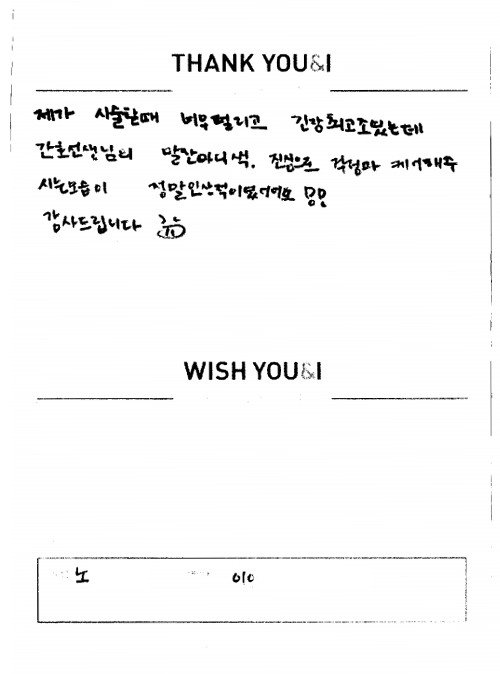 THANK YOU&I
제가 시술할때 너무떨리고 긴장최고조였는데
간호선생님의 말한마디씩, 진심으로 걱정과 케어해주
시는모습이 정말인상적이였어요
감사드립니다
WISH YOU&I
노 010